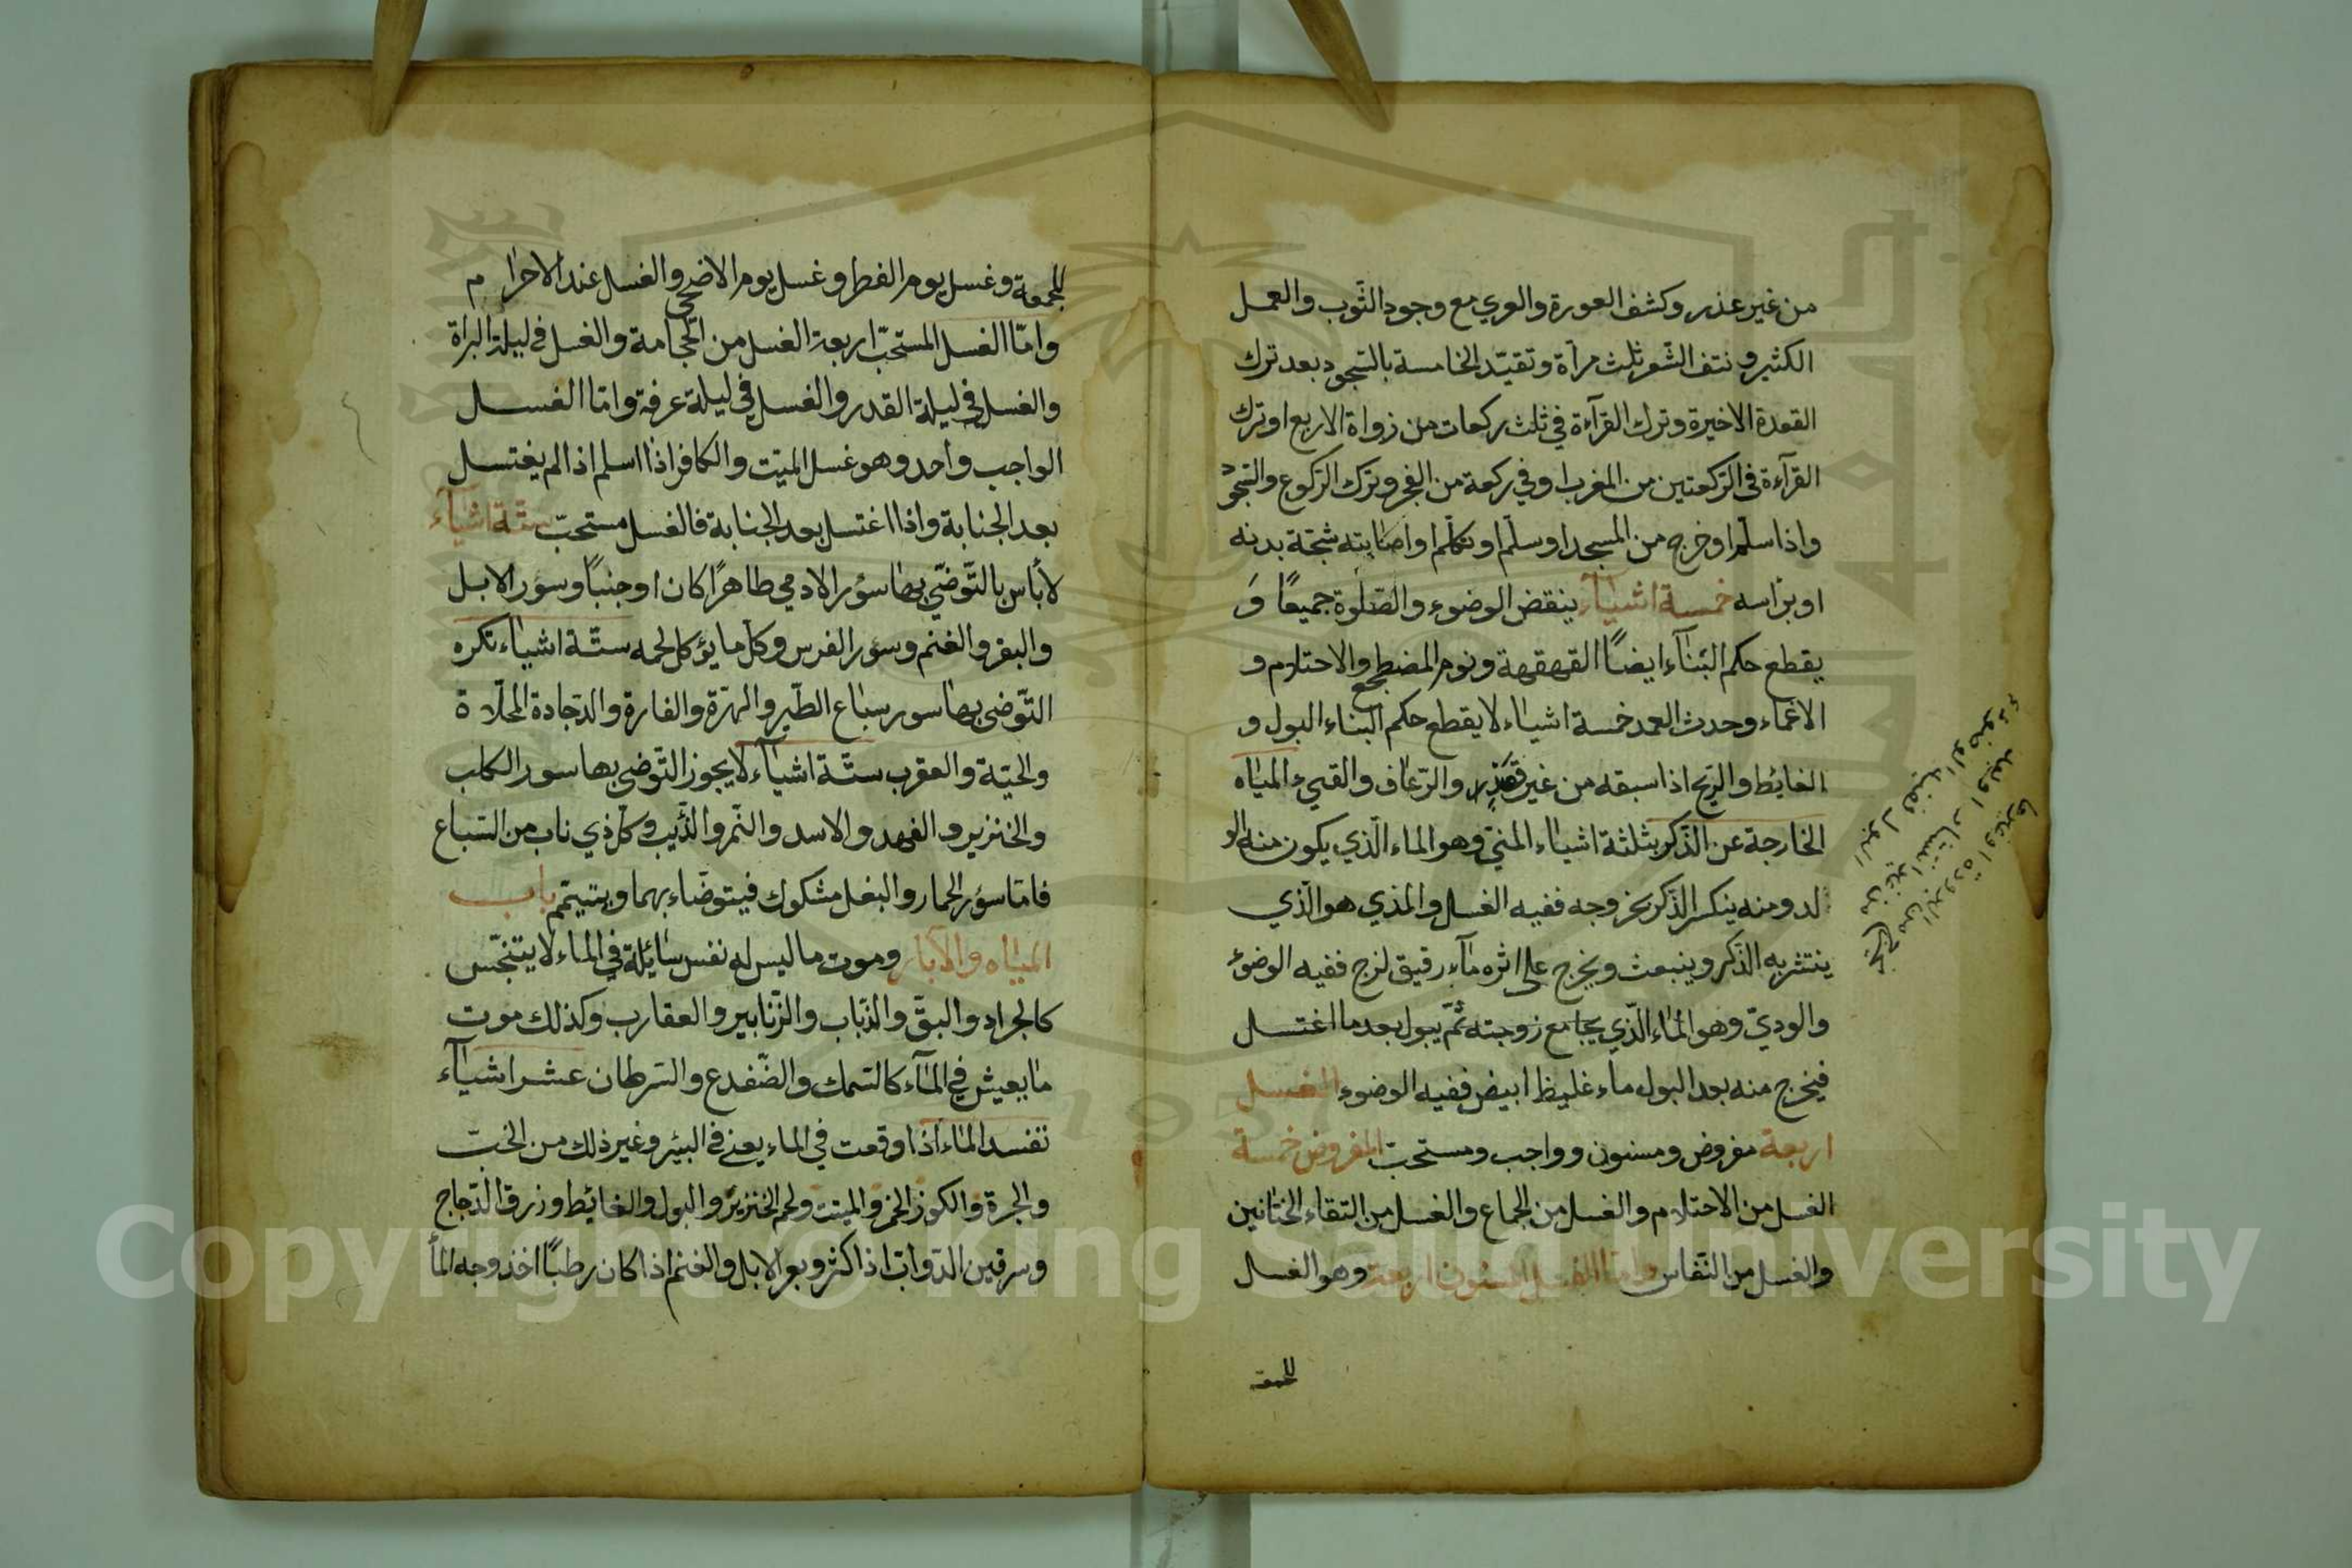 من غير عذر وكشف العورة والعري مع وجود الثّوب والعمل
الكثير و نتف الشّعر ثلث مرآة وتقيّد الخامسة بالسّجود بعد ترك
القعدة الاخيرة وترك القرآءة في ثلث ركعات من زواة الاربع اوترك
القرآءة فى الرّكعتين من المغرب اوفي ركعة من الفجر وترك الرّكوع والسّجود
واذا سلّم اوخرج من المسجد اوسلّم اوتكلّم اواصابته شجّة بدنه
او برأسه خمسة اشيآء ينقض الوضوء والصّلوة جميعًا وَ
يقطع حكم البّنآء ايضًا القهقهة ونوم المضطجع والاحتلام و
الاغماء وحدث العمد خمسة اشياء لا يقطع حكم البناء البول و
الغائط والرّيح اذا سبقه من غير والرّعاف والقيء المياه
الخارجة عن الذّكر بثلثة اشياء المنيّ وهو الماء الّذي يكون منه الو
لد ومنه ينكسر الذّكر بخروجه ففيه الغسل والمذي هو الّذي
ينتشر به الذّكر وينبعث ويخرج على اثره مآء رقيق لزج ففيه الوضؤ
والوديّ وهو الماء الّذي يجامع زوجته ثمّ يبول بعدما اغتسل
فيخرج منه بعد البول ماء غليظ ابيض ففيه الوضوء الغسل
اربعة مفروض ومسنون وواجب ومستحبّ المفروض خمسة
الغسل من الاحتلام والغسل من الجماع والغسل من التقاء الختانين
والغسل من النّفاس وامّا الغسل المسنون اربعة وهو الغسل
للجمعة
للجمعة وغسل يوم الفطر وغسل يوم الاضحى والغسل عند الاحرام
وامّا الغسل المستحبّ اربعة الغسل من الحجامة والغسل في ليلة البراة
والغسل في ليلة القدر والغسل في ليلة عرفة وامّا الغسل
الواجب واحد وهو غسل الميّت والكافر اذا اسلم اذا لم يغتسل
بعد الجنابة واذا اغتسل بعد الجنابة فالغسل مستحبّ ستّة اشيآء
لا بأس بالتّوضّي بها سؤر الادمي طاهرًا كان اوجنبًا وسؤر الابل
والبقر والغنم وسؤر الفرس وكل ما يؤكل لحمه ستّة اشياء تكره
التّوضّى بها سور سباع الطّير والهرّة والفارة والدّجادة المحلّاة
والحيّة والعقرب ستّة اشيآء لا يجوز التّوضي بها سور الكلب
والخنزير والفهد والاسد والنّمر والذّئب وكلّ ذي ناب من السّباع
فامّا سؤر الحمار والبغل مشكوك فيتوضّاء بهما ويتيمّم باب
المياه والآبار وموت ما ليس له نفس سائلة في الماء لا يتنجّس
كالجراد والبقّ والذّباب والزّنابير والعقارب وكذلك موت
ما يعيش في المآء كالسّمك والضّفدع والسّرطان عشر اشيآء
تفسد الماء اذا وقعت في الماء يعنى في البئر وغير ذلك من الخبّ
والجرة والكوز الخمر والميّت ولحم الخنزير والبول والغائط وزرق الدّجاج
وسرقين الدّوابّ اذا كثر وبعر الابل والغنم اذا كان رطبًا اخذ وجه المأ
Copyright © King Saud University
1957